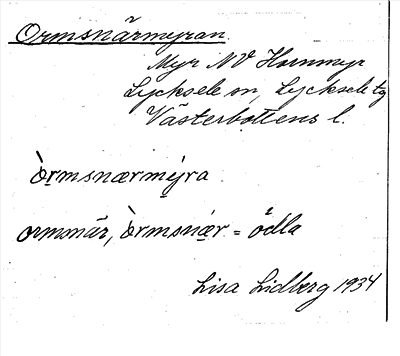 Ormsnärmyran
Myr NV Hornmyr
Lycksele sn, Lycksele tg
Västerbottens l.
òrmsnærmýra
ormsnär, òrmsnær = ödla
Lisa Lidberg 1934